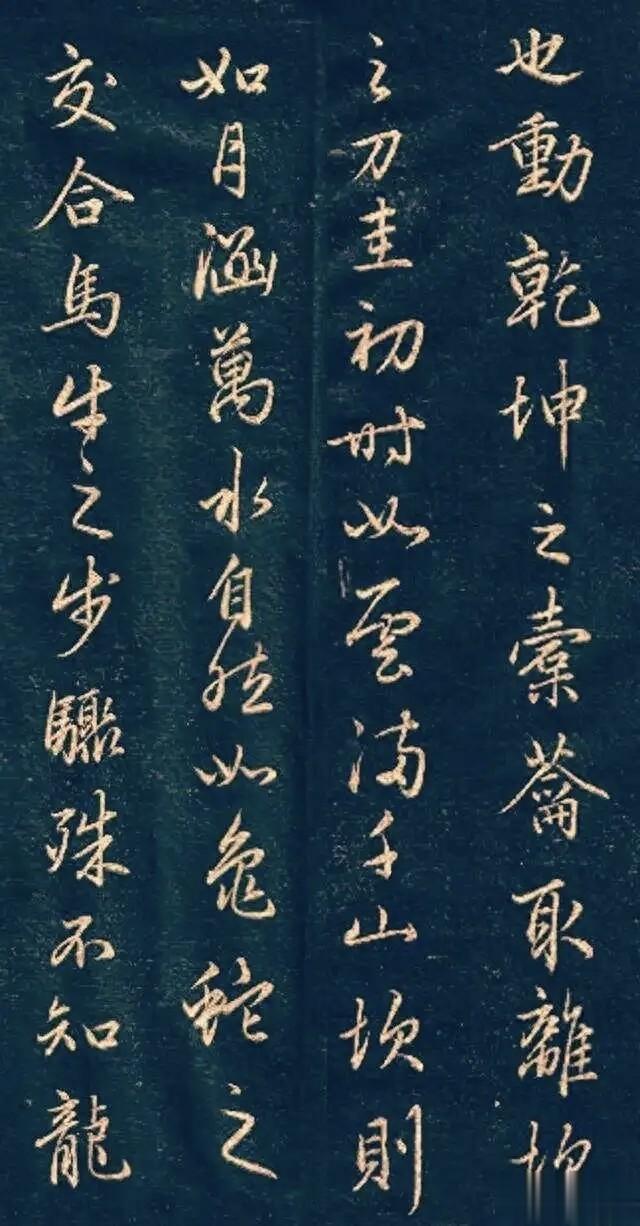 也動乾坤之橐籥取離坎
之刀圭初時如雲滿千山次則
如月涵萬水自然如龜蛇之
交合馬牛之步驟殊不知龍